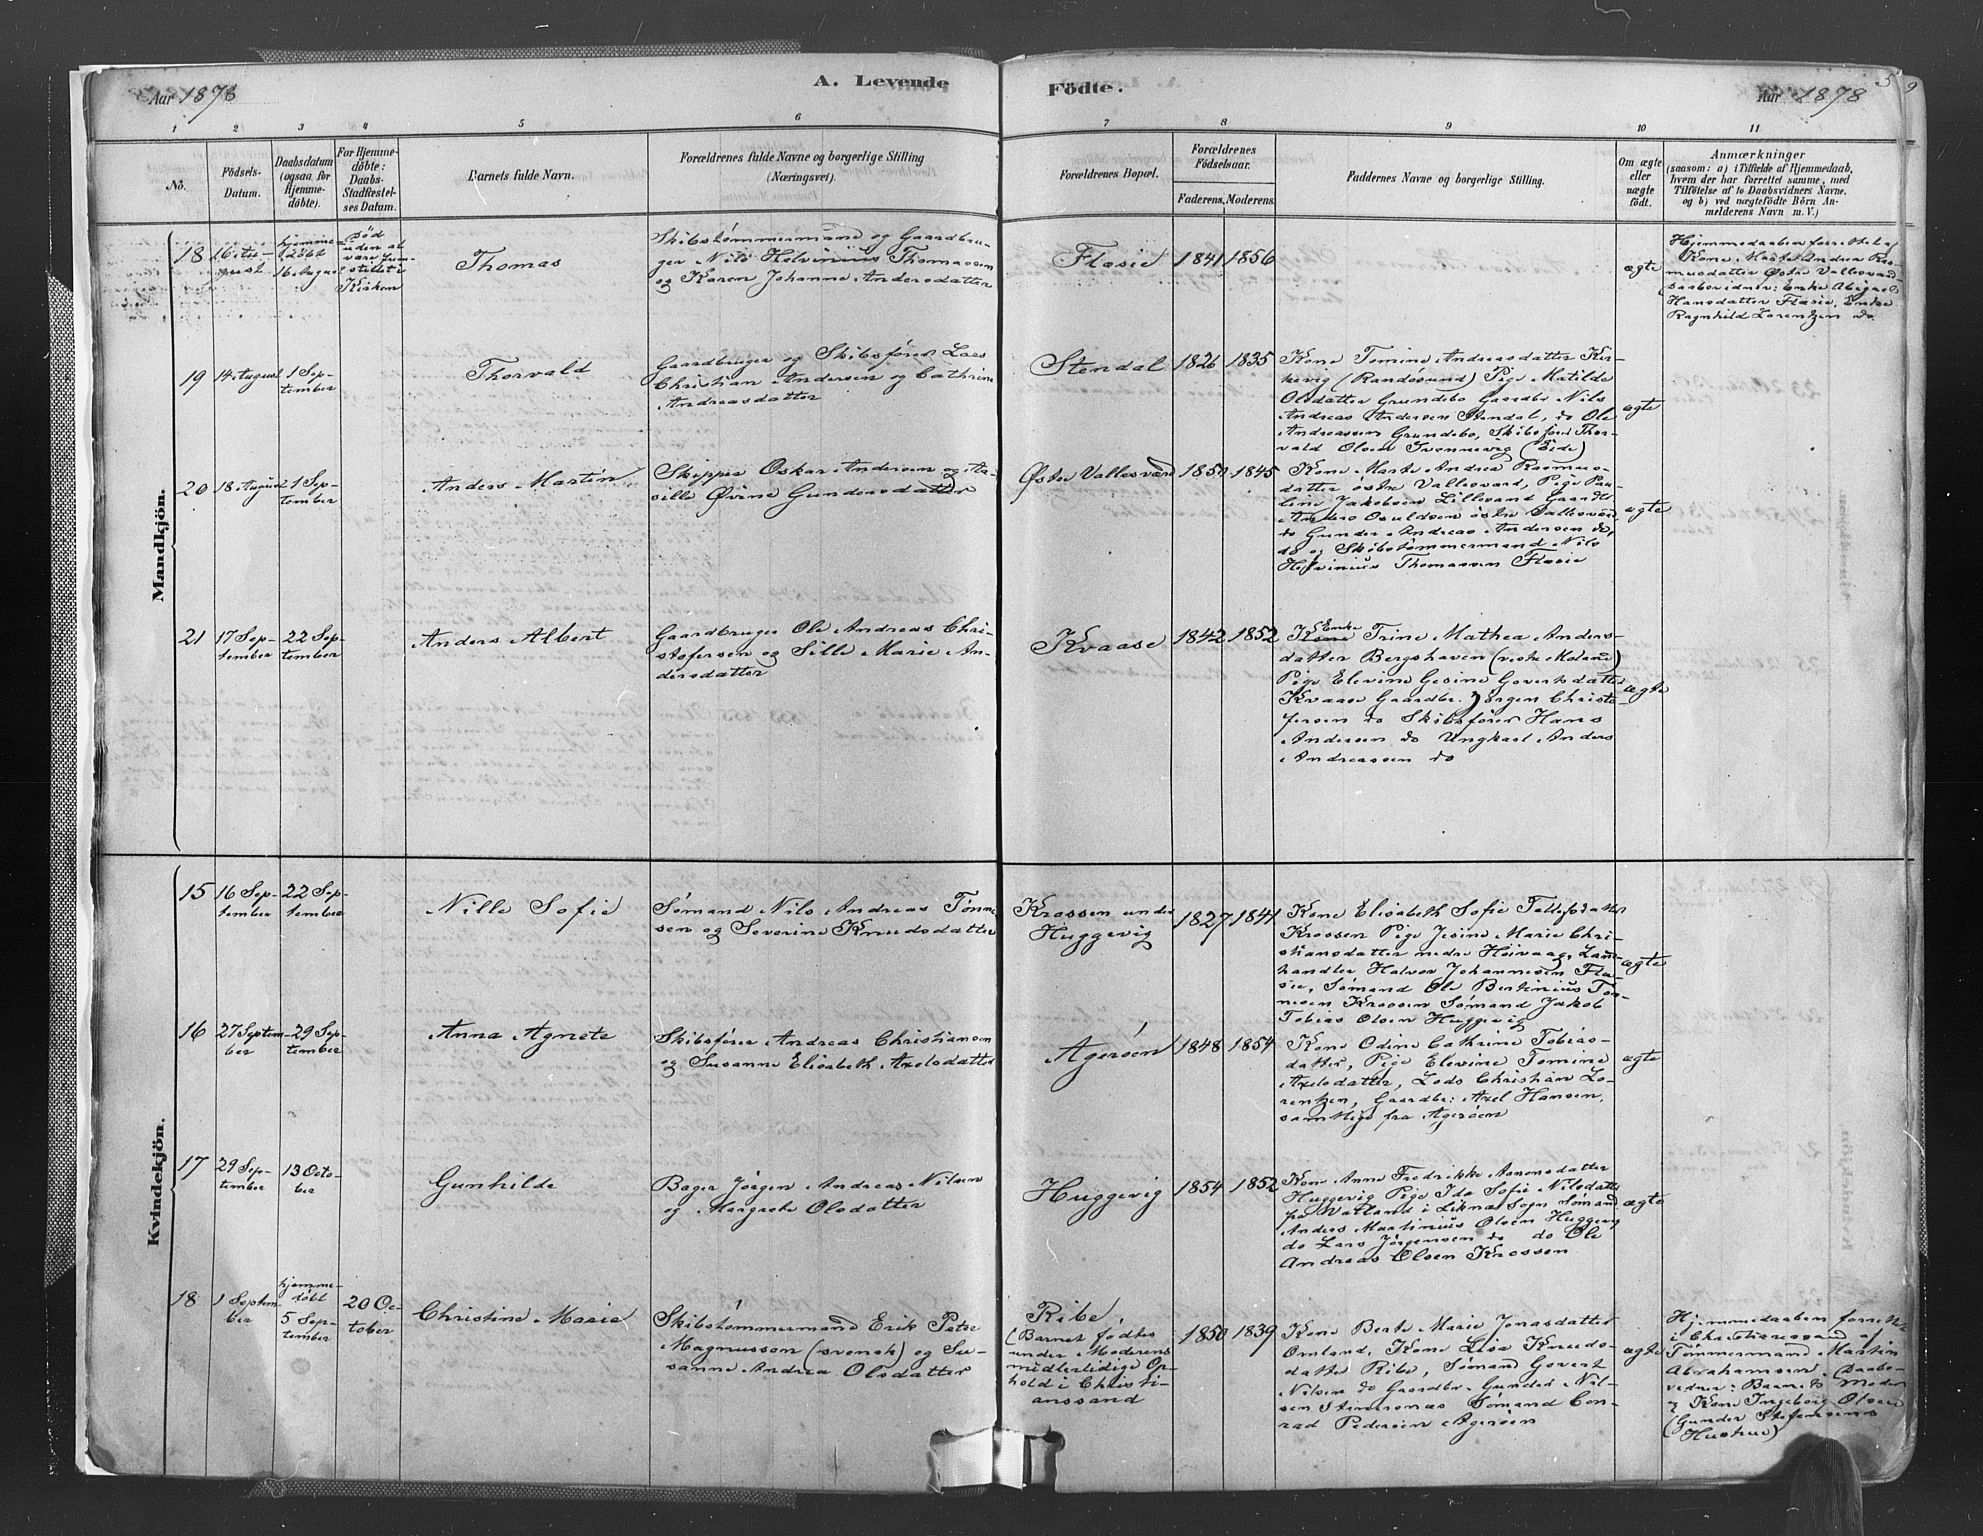 Aar 1878
A. Levende
Födte.
Aar 1878
5
1
2
3
4
5
6
7
8
9
10
11
No.
Födsels-
Datum.
Daabsdatum
(ogsaa for
Hjemme-
döbte).
For Hjemme-
döbte:
Daabs-
Stadfæstel-
ses Datum.
Barnets fulde Navn.
Forældrenes fulde Navne og borgerlige Stilling
(Næringsvei).
Forældrenes Bopæl.
Forældrenes
Födselsaar.
Faderens.
Moderens.
Faddernes Navne og borgerlige Stilling.
Om ægte
eller
uægte
födt.
Anmærkninger
(saasom: a) i Tilfælde af Hjemmedaab,
hvem der har forrettet samme, med
Tilföielse af to Daabsvidners Navne,
og b) ved uægtefödte Börn An-
melderens Navn m. V.)
Mandkjön.
18
16 Au-
gust
hjemme-
døbt
16 August
Død
uden at
være
stillet i
Kirken
Thomas
Skibstømmermand og Gaardbru-
ger Nils Helvinius Thomassen
og Karen Johanne Andersdatter
Flasie
1841
1856
ægte
Hjemmedaaben forrettet af
Kone Marte Andrea Ras-
musdatter Østre Vallesværd
Daabsvidner: Enke Abigael
Hansdatter Flasie, Enke
Ragnhild Lorentzen do
19
14 August
1 Sep-
tember
Thorvald
Gaardbruger og Skibsfører Lars
Christian Andersen og Cathrine
Andreasdatter
Stendal
1826
1835
Kone Tomine Andreasdatter Kir-
kevig (Randøsund) Pige Matilde
Olsdatter Grundebo Gaardbr Nils
Andreas Andersen Stendal, do Ole
Andreassen Grundebo, Skibsfører Thor-
vald Olsen Svennevig (Eide)
ægte
20
18 August
1 Sep-
tember
Anders Martin
Skipper Oskar Andersen og Aa-
sille Øvine Gundersdatter
Østre Vallesværd
1850
1845
Kone Marte Andrea Rasmus-
datter østre Vallesværd, Pige Pau-
line Jakobsen Lillesand Gaardb.
Anders Osuldsen østre Vallesværd
do Gunder Andreas Andersen do,
do og Skibstømmermand Nils
Helvinius Thomassen Flasie
ægte
21
17 Sep-
tember
22 Sep-
tember
Anders Albert
Gaardbruger Ole Andreas Chri-
stofersen og Sille Marie An-
dersdatter
Kvaase
1842
1852
Enke
Kone Trine Mathea Anders-
datter Bergshaven (vestre Moland)
Pige Elevine Gesine Govertsdatter
Kvaase Gaardbr. Jørgen Christo-
fersen do Skibsfører Hans
Andersen do Ungkarl Anders
Andreassen do
ægte
Kvindekjön.
15
16 Sep-
tember
22 Sep-
tember
Nille Sofie
Sømand Nils Andreas Tønne-
sen og Severine Knudsdatter
Krossen under
Huggevig
1827
1841
Kone Elisabeth Sofie Tallefsdatter
Krossen Pige Jesine Marie Chri-
stiansdatter nedre Høivaag, Land-
handler Halvor Johannesen Fla-
sie, Sømand Ole Bertinius Tøn-
nesen Krossen Sømand Jakob
Tobias Olsen Huggevig
ægte
16
27 Septem-
ber
29 Sep-
tember
Anna Agnete
Skibsfører Andreas Christiansen
og Susanne Elisabeth Axelsdatter
Agerøen
1848
1854
Kone Odine Cathrine Tobias-
datter, Pige Elevine Tomine
Axelsdatter, Lods Christian Lo-
rentzen, Gaardbr: Axel Hansen,
samtlige fra Agerøen
ægte
17
29 Sep-
tember
13 Octo-
ber
Gunhilde
Bager Jørgen Andreas Nilsen
og Margrete Olsdatter
Huggevig
1854
1852
Kone Anne Fredrikke Aanonsdatter
Huggevig Pige Ida Sofie Nilsdatter
fra Vatland i Liknæs Sogn Sømand
Anders Martinius Olsen Huggevig
do Lars Jørgensen do do Ole
Andreas Olsen Krossen
ægte
18
1 Septem-
ber
hjemme-
døbt
5 Sep-
tember
20 Oc-
tober
Christine Marie
Skibstømmermand Erik Peter
Magnusson (svensk) og Su-
sanne Andrea Olsdatter
Ribe
(Barnet fødtes
under Moderens
midlertidige Op-
hold i Christi-
anssand
1850
1839
Kone Berte Marie Jonasdatter
Omland, Kone Lisa Knuds-
datter Ribe, Sømand Govert
Nilsen do Gaardbr. Gunder Nil-
sen Stenersnæs Sømand Con-
rad Pedersen Agerøen
ægte
Hjemmedaaben forrettet
i Christianssand af
Tømmermand Martin
Abrahamsen. Daabs-
vidner: Barnets Moder
og Kone Ingeborg Olsen
(Gunder Stefensens
Hustru)